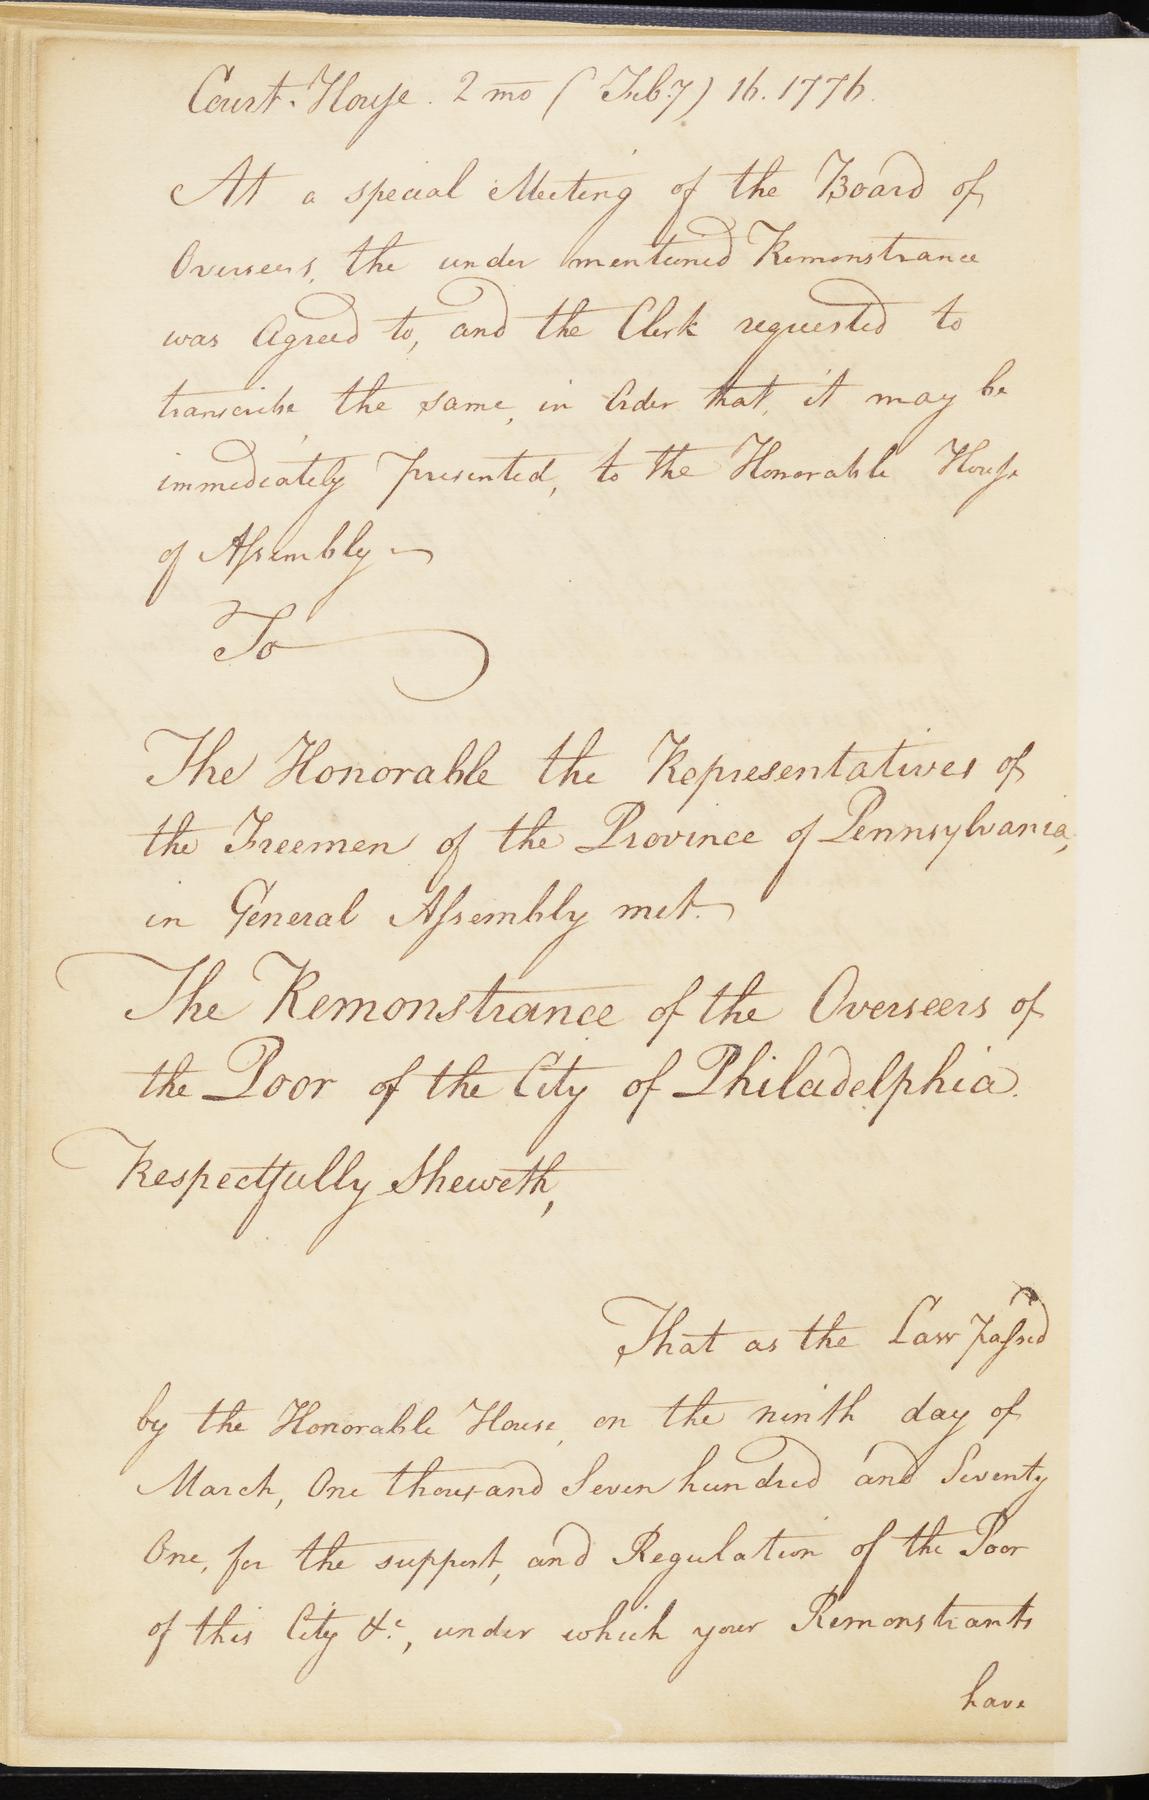 Court-House. 2 mo (Feb:y) 16. 1776.
At a special Meeting of the Board of
Overseers, the under mentioned Remonstrance
was Agreed to, and the Clerk requested to
transcribe the same, in Order that, it may be
immediately presented, to the Honorable House
of Assembly —
To
The Honorable the Representatives of
the Freemen of the Province of Pennsylvania,
in General Assembly met.
The Remonstrance of the Overseers of
the Poor of the City of Philadelphia.
Respectfully Sheweth,
That as the Law passed
by the Honorable House, on the ninth day of
March, One thousand Seven hundred and Seventy
One, for the support, and Regulation of the Poor
of this City &c, under which your Remonstrants
have